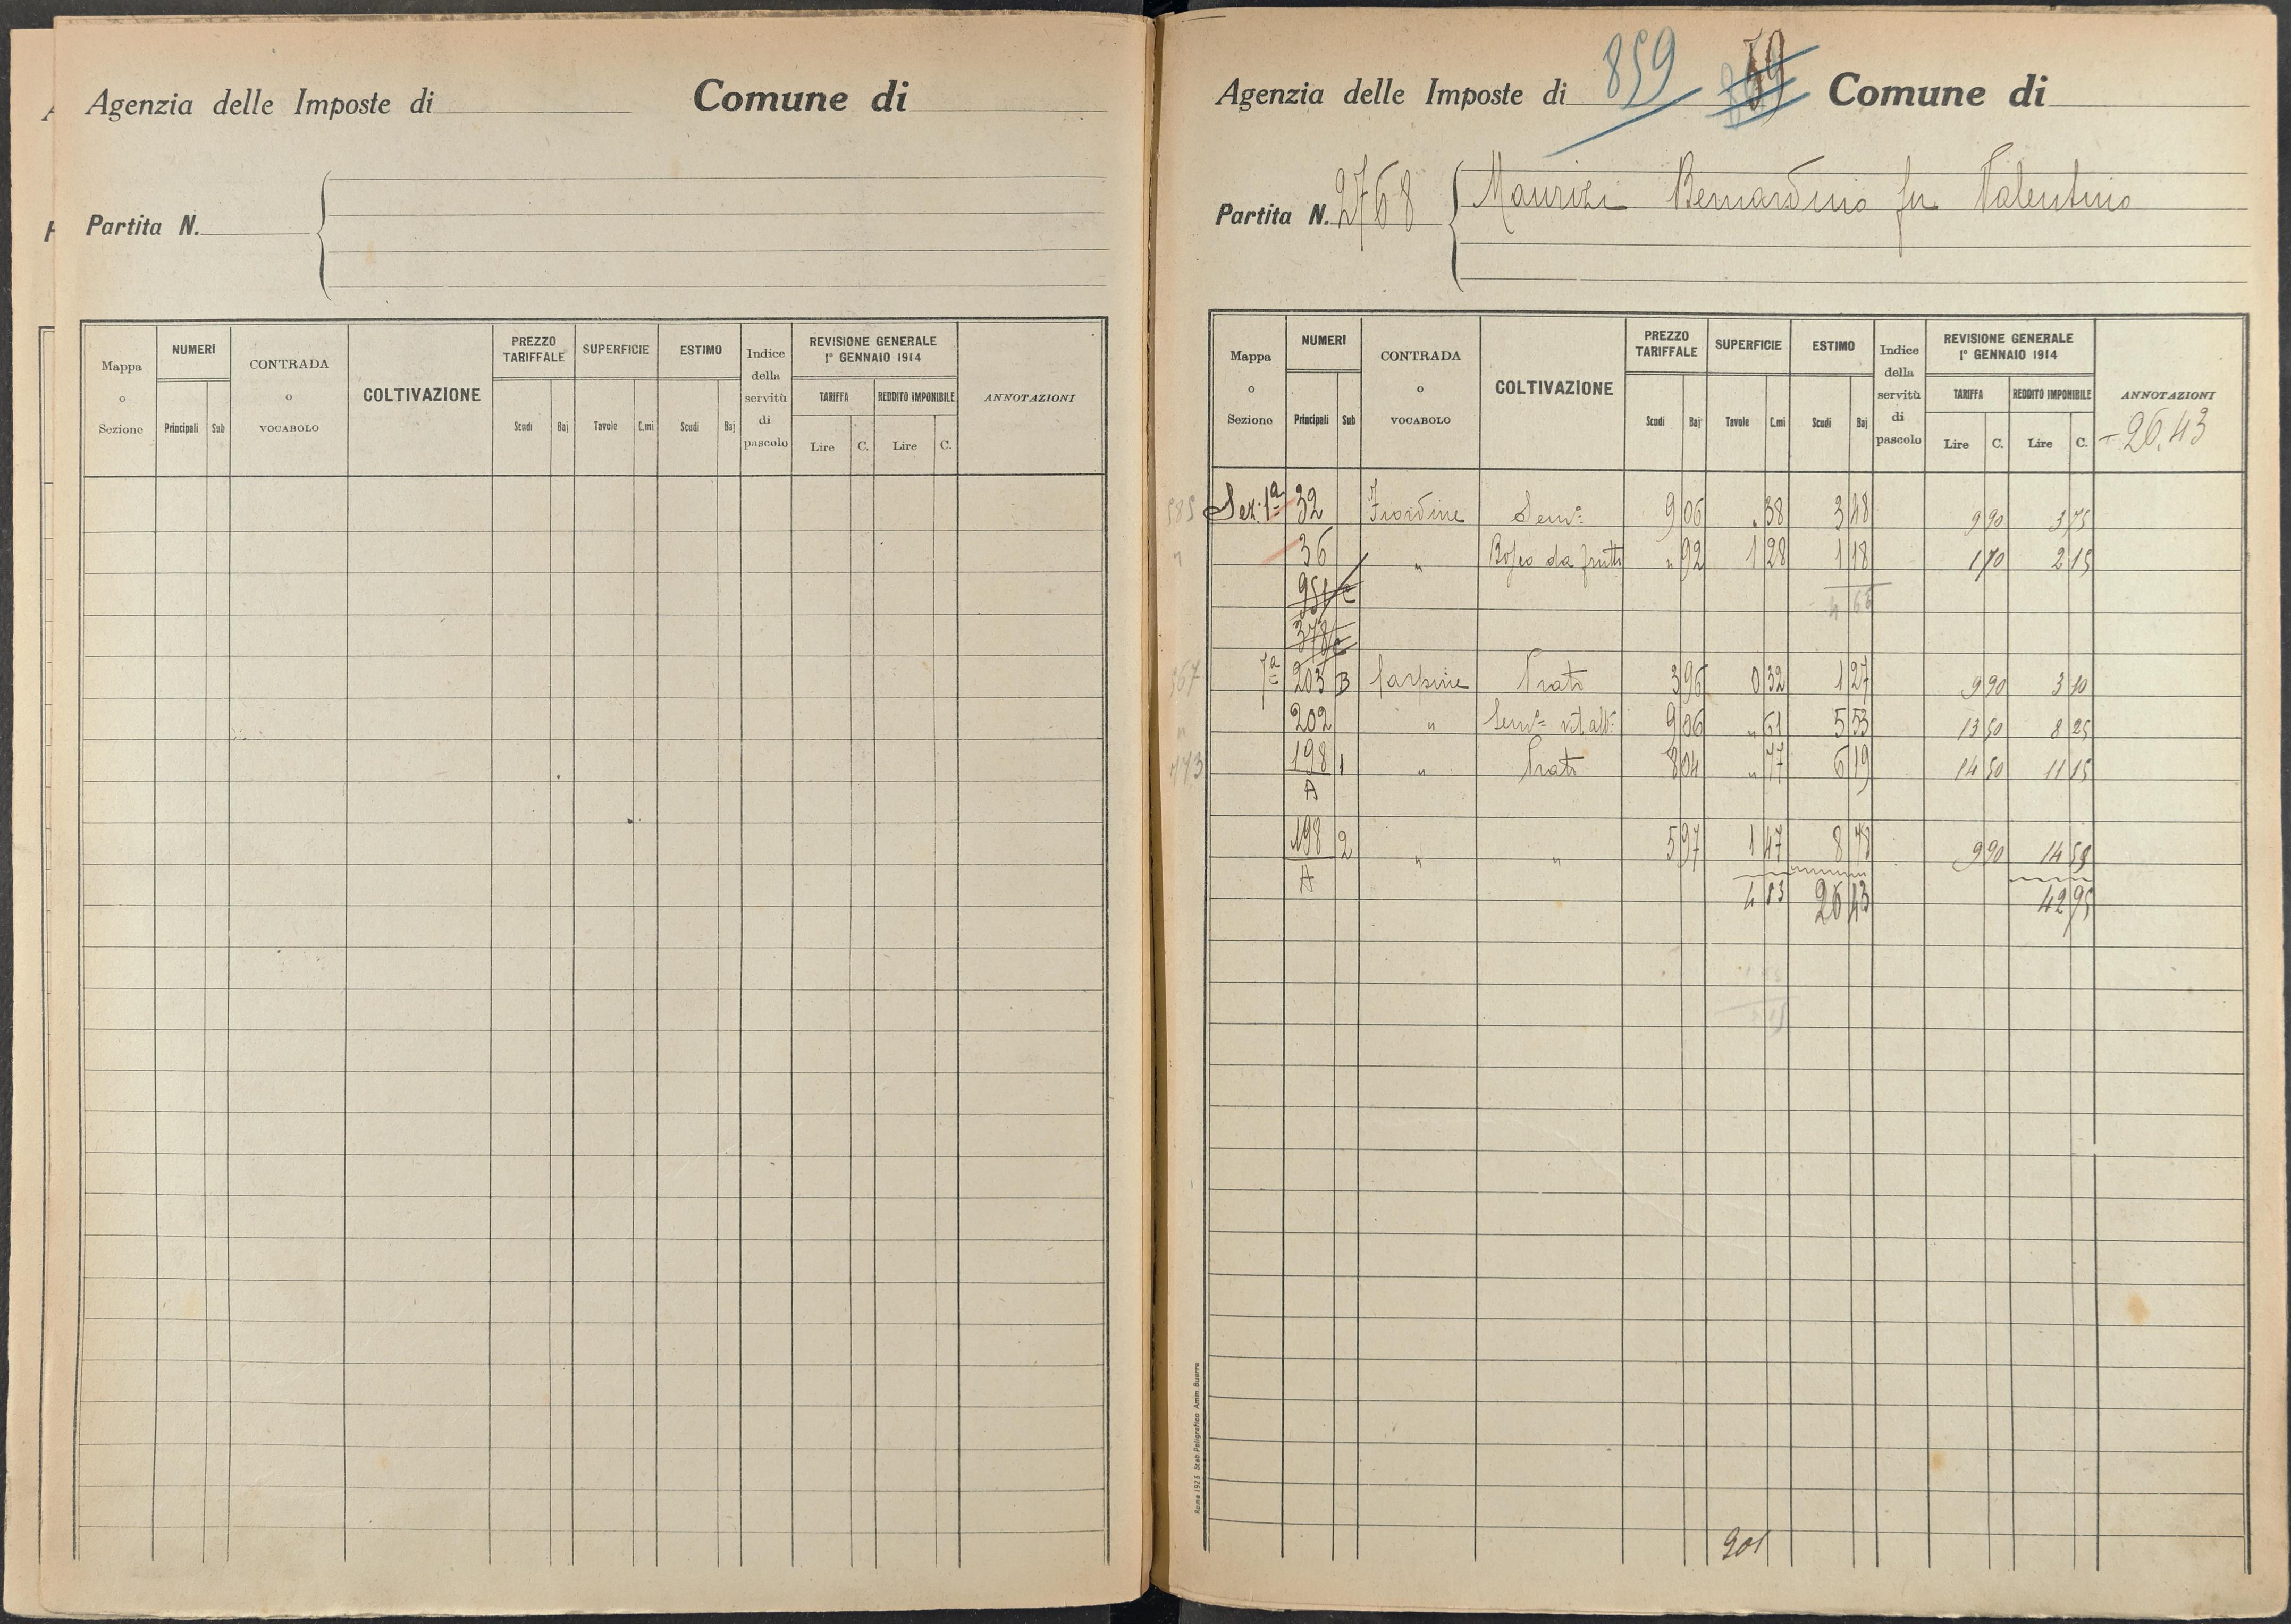 Agenzia delle Imposte di Comune di
Partita N.
Mappa o Sezione NUMERI Principali Sub CONTRADA o VOCABOLO COLTIVAZIONE PREZZO TARIFFALE Scudi Baj SUPERFICIE Tavole C.mi ESTIMO Scudi Baj Indice della servitù di pascolo REVISIONE GENERALE 1° GENNAIO 1914 TARIFFA Lire C. REDDITO IMPONIBILE Lire C. ANNOTAZIONI
Agenzia delle Imposte di 859 Comune di
Partita N. 2768 Maurizi Bernardino fu Valentino
Mappa o Sezione NUMERI Principali Sub CONTRADA o VOCABOLO COLTIVAZIONE PREZZO TARIFFALE Scudi Baj SUPERFICIE Tavole C.mi ESTIMO Scudi Baj Indice della servitù di pascolo REVISIONE GENERALE 1° GENNAIO 1914 TARIFFA Lire C. REDDITO IMPONIBILE Lire C. ANNOTAZIONI
- 26,43
585 Sez. 1ª 32 Fiordine Semo 9 06 38 3 48 9 90 3 75
" 36 " Bosco da frutto " 92 1 28 1 18 1 70 2 15
4 66
7ª 203 B Carpine Prato 3 96 0 32 1 27 9 90 3 10
" 202 " Semo vitato 9 06 " 61 5 53 13 50 8 25
773 198 A 1 " Prato 8 04 " 77 6 19 14 50 11 15
198 A 2 " " 5 97 1 47 8 78 9 90 14 55
4 83 26 43 42 95
Roma 1925 Stab Poligrafico Amm Guerra
901